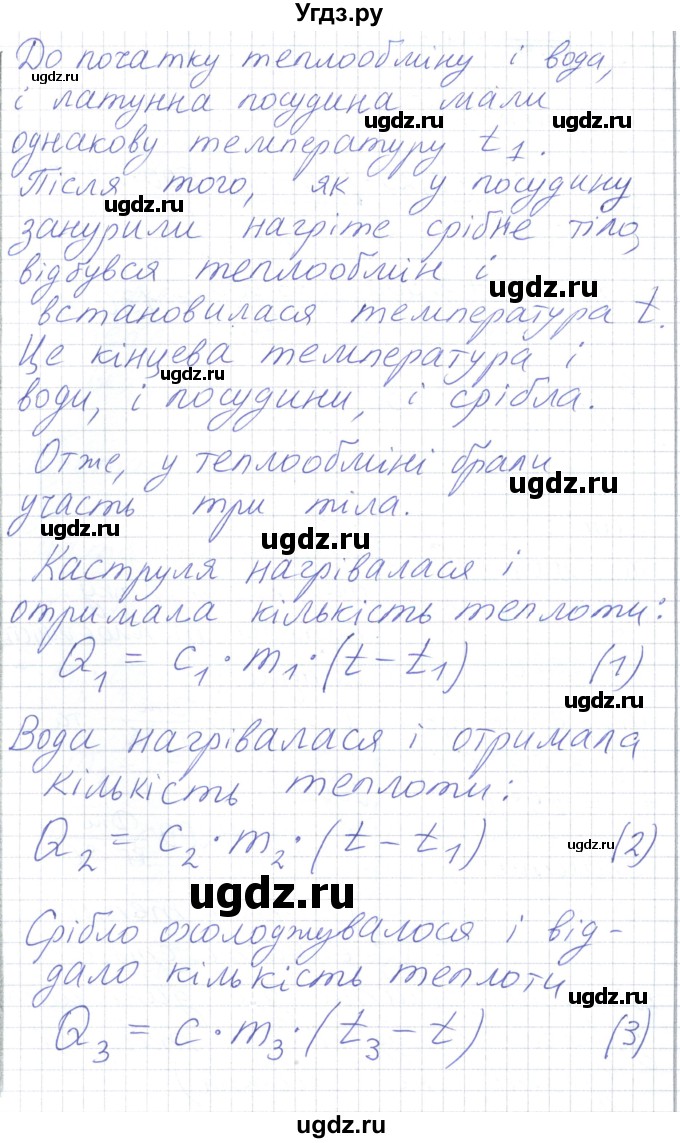 Угдз.ру
До початку теплообміну і вода,
і латунна посудина мали
однакову температуру t₁.
Після того, як у посудину
занурили нагріте срібне тіло,
відбувся теплообмін і
встановилася температура t.
Це кінцева температура і
води, і посудини, і срібла.
Отже, у теплообміні брали
участь три тіла.
Каструля нагрівалася і
отримала кількість теплоти:
Q₁ = c₁·m₁·(t – t₁) (1)
Вода нагрівалася і отримала
кількість теплоти:
Q₂ = c₂·m₂·(t – t₁) (2)
Срібло охолоджувалося і від-
дало кількість теплоти
Q₃ = c·m₃·(t₃ – t) (3)
ugdz.ru
ugdz.ru
ugdz.ru
ugdz.ru
ugdz.ru
ugdz.ru
ugdz.ru
ugdz.ru
ugdz.ru
ugdz.ru
ugdz.ru
ugdz.ru
ugdz.ru
ugdz.ru